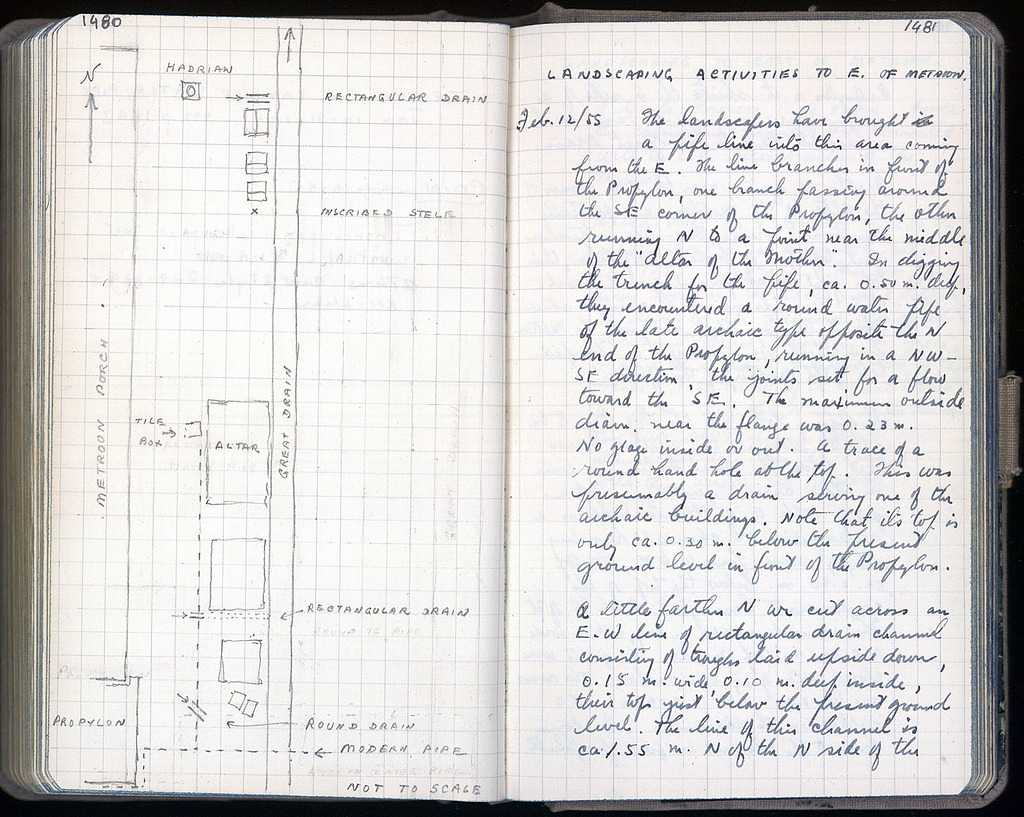 1480
N
HADRIAN
RECTANGULAR DRAIN
INSCRIBED STELE
METROON PORCH
GREAT DRAIN
TILE
BOX
ALTAR
RECTANGULAR DRAIN
PROPYLON
ROUND DRAIN
MODERN PIPE
NOT TO SCALE
1481
LANDSCAPING ACTIVITIES TO E. OF METROON.
Feb. 12/55 The landscapers have brought
a pipe line into this area coming
from the E. The line branches in front of
the Propylon, one branch passing around
the SE corner of the Propylon, the other
running N to a point near the middle
of the "altar of the Mother". In digging
the trench for the pipe, ca. 0.50 m. deep,
they encountered a round water pipe
of the late archaic type opposite the N
end of the Propylon, running in a NW-
SE direction, the joints set for a flow
toward the SE. The maximum outside
diam. near the flange was 0.23 m.
No glaze inside or out. A trace of a
round hand hole at the top. This was
presumably a drain serving one of the
archaic buildings. Note that its top is
only ca. 0.30 m. below the present
ground level in front of the Propylon.
A little farther N we cut across an
E-W line of rectangular drain channel
consisting of troughs laid upside down,
0.15 m. wide, 0.10 m. deep inside,
their top just below the present ground
level. The line of this channel is
ca. 1.55 m. N of the N side of the